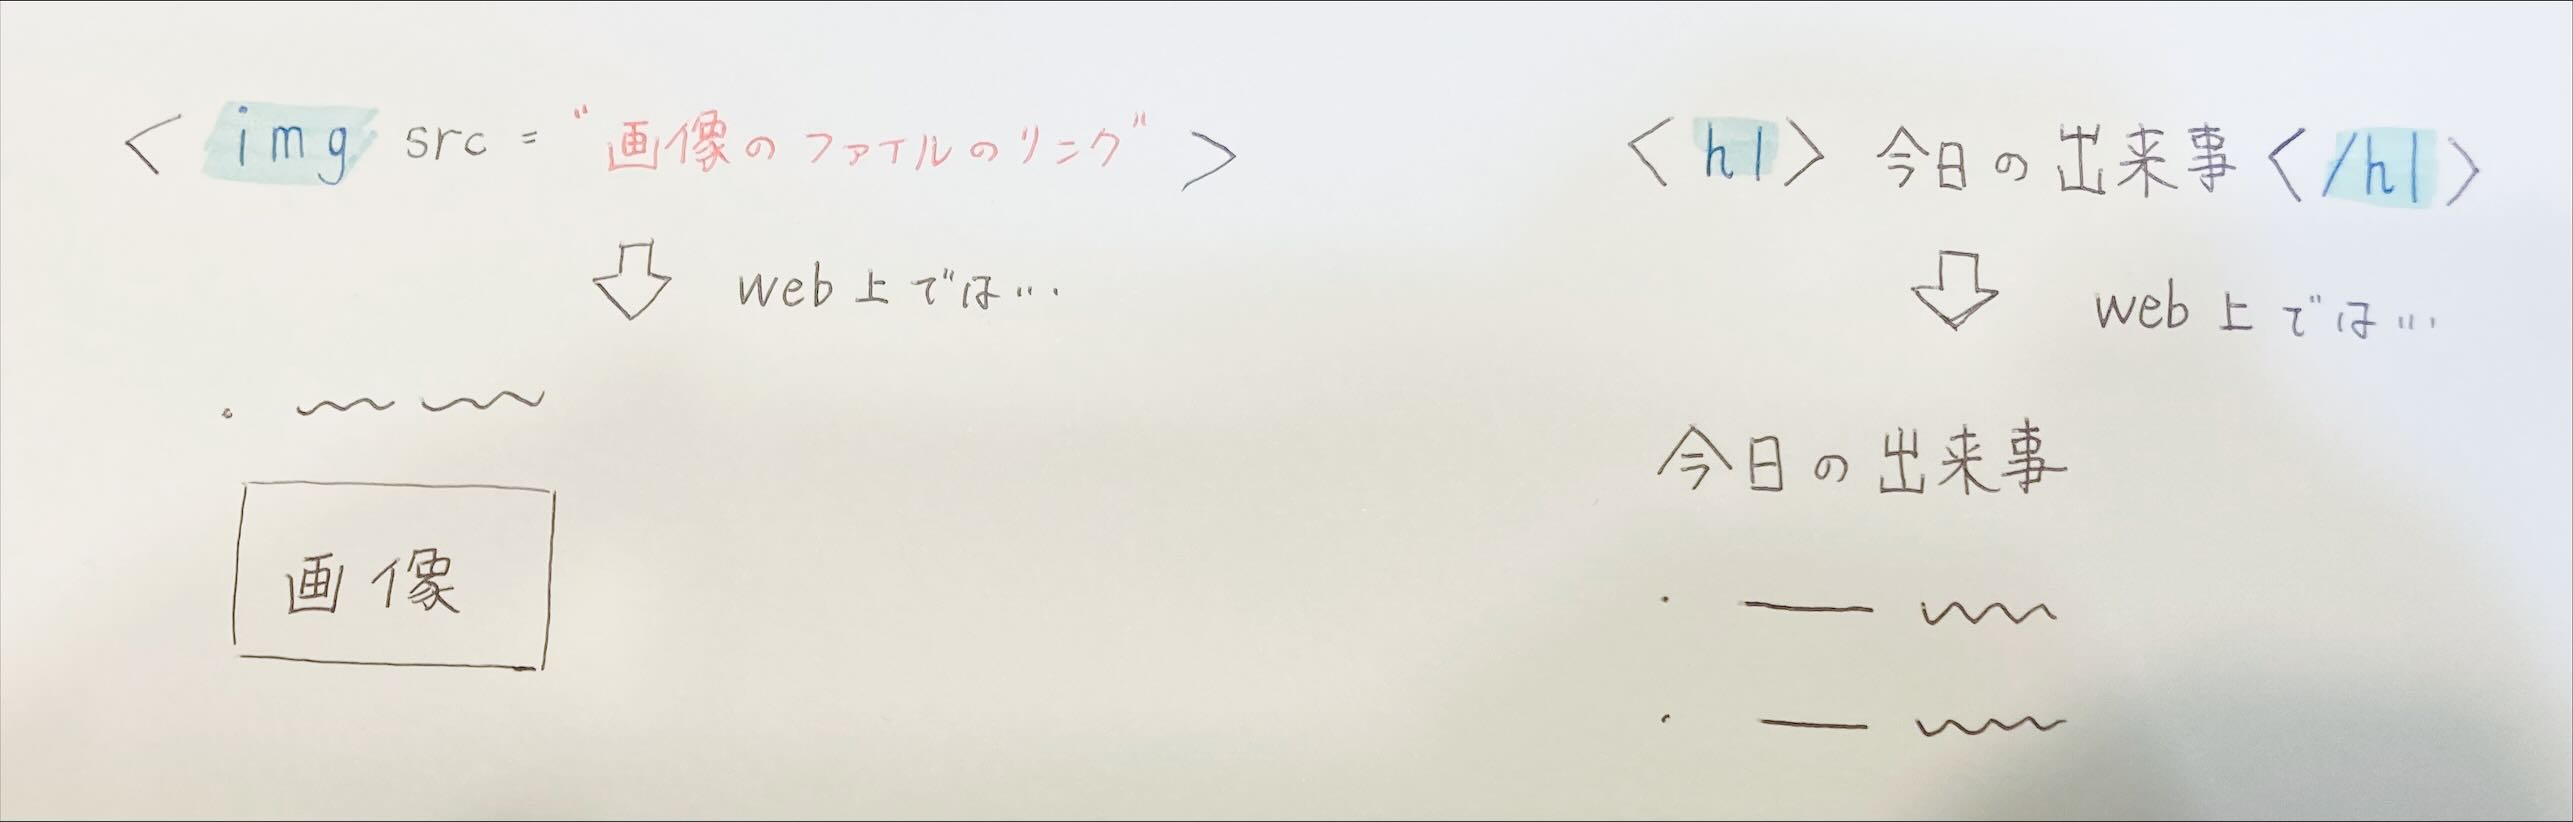 < img src = "画像のファイルのリンク" >
web上では...
画像
<h1>今日の出来事</h1>
web上では...
今日の出来事